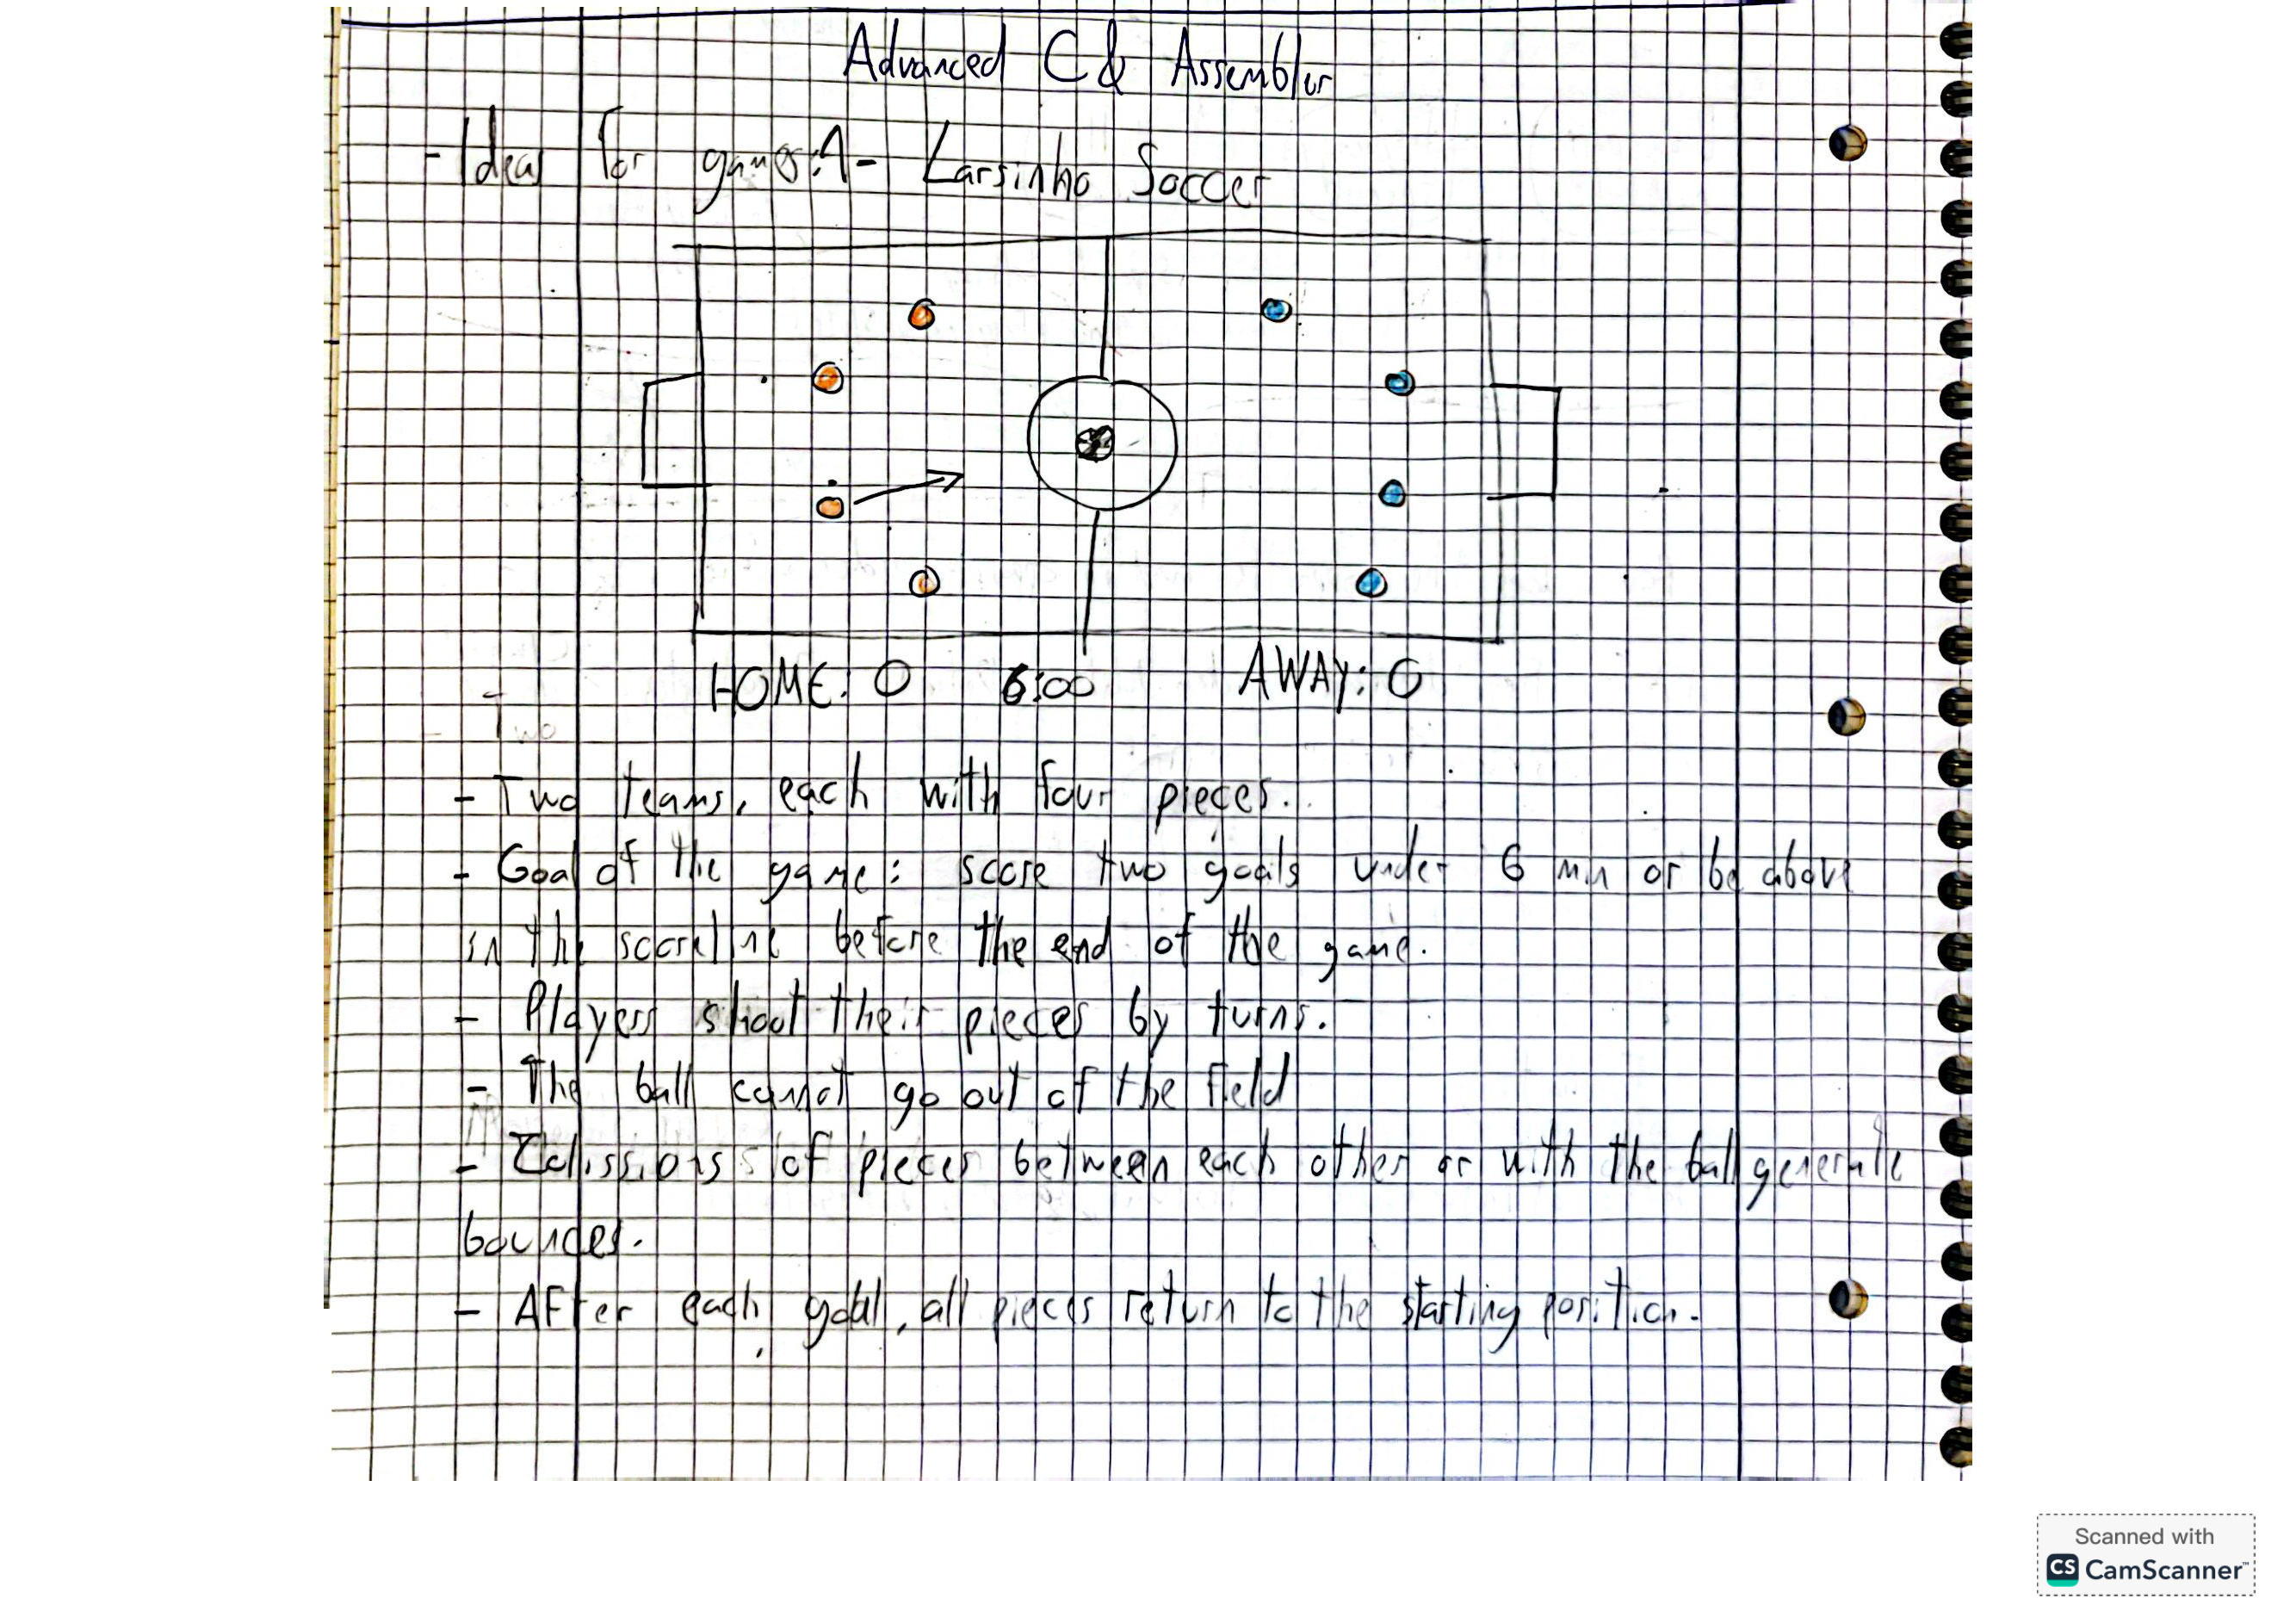 Advanced C & Assembler
- Ideas for games: 1- Larsinho Soccer
HOME: 0 6:00 AWAY: 0
- Two
- Two teams, each with four pieces.
- Goal of the game: score two goals under 6 min or be above
in the scoreline before the end of the game.
- Players shoot their pieces by turns.
- The ball cannot go out of the field
- Colissions of pieces between each other or with the ball generate
bounces.
- AFter each goal, all pieces return to the starting position.
Scanned with
CS CamScanner™